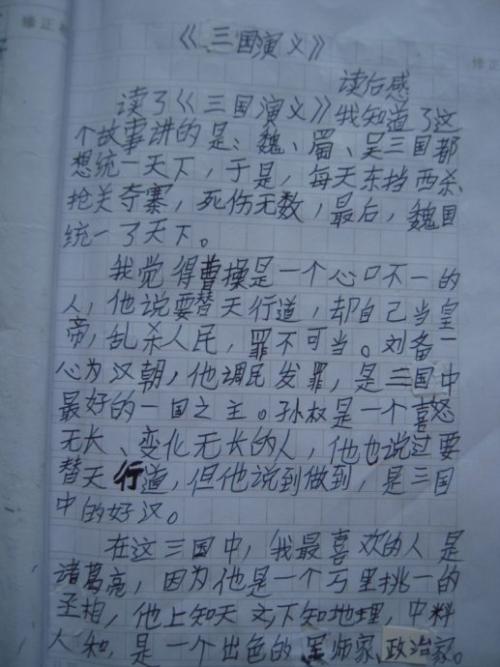 修正
修正
《三国演义》
读后感
读了《三国演义》我知道了这
个故事讲的是：魏、蜀、吴三国都
想统一天下，于是，每天东挡西杀、
抢关夺寨，死伤无数，最后，魏国
统一了天下。
我觉得曹操是一个心口不一的
人，他说要替天行道，却自己当皇
帝，乱杀人民，罪不可当。刘备一
心为汉朝，他调民发罪，是三国中
最好的一国之主。孙权是一个喜怒
无长、变化无长的人，他也说过要
替天行道，但他说到做到，是三国
中的好汉。
在这三国中，我最喜欢的人是
诸葛亮，因为他是一个万里挑一的
丞相，他上知天文，下知地理，中料
人和，是一个出色的军师家、政治家。